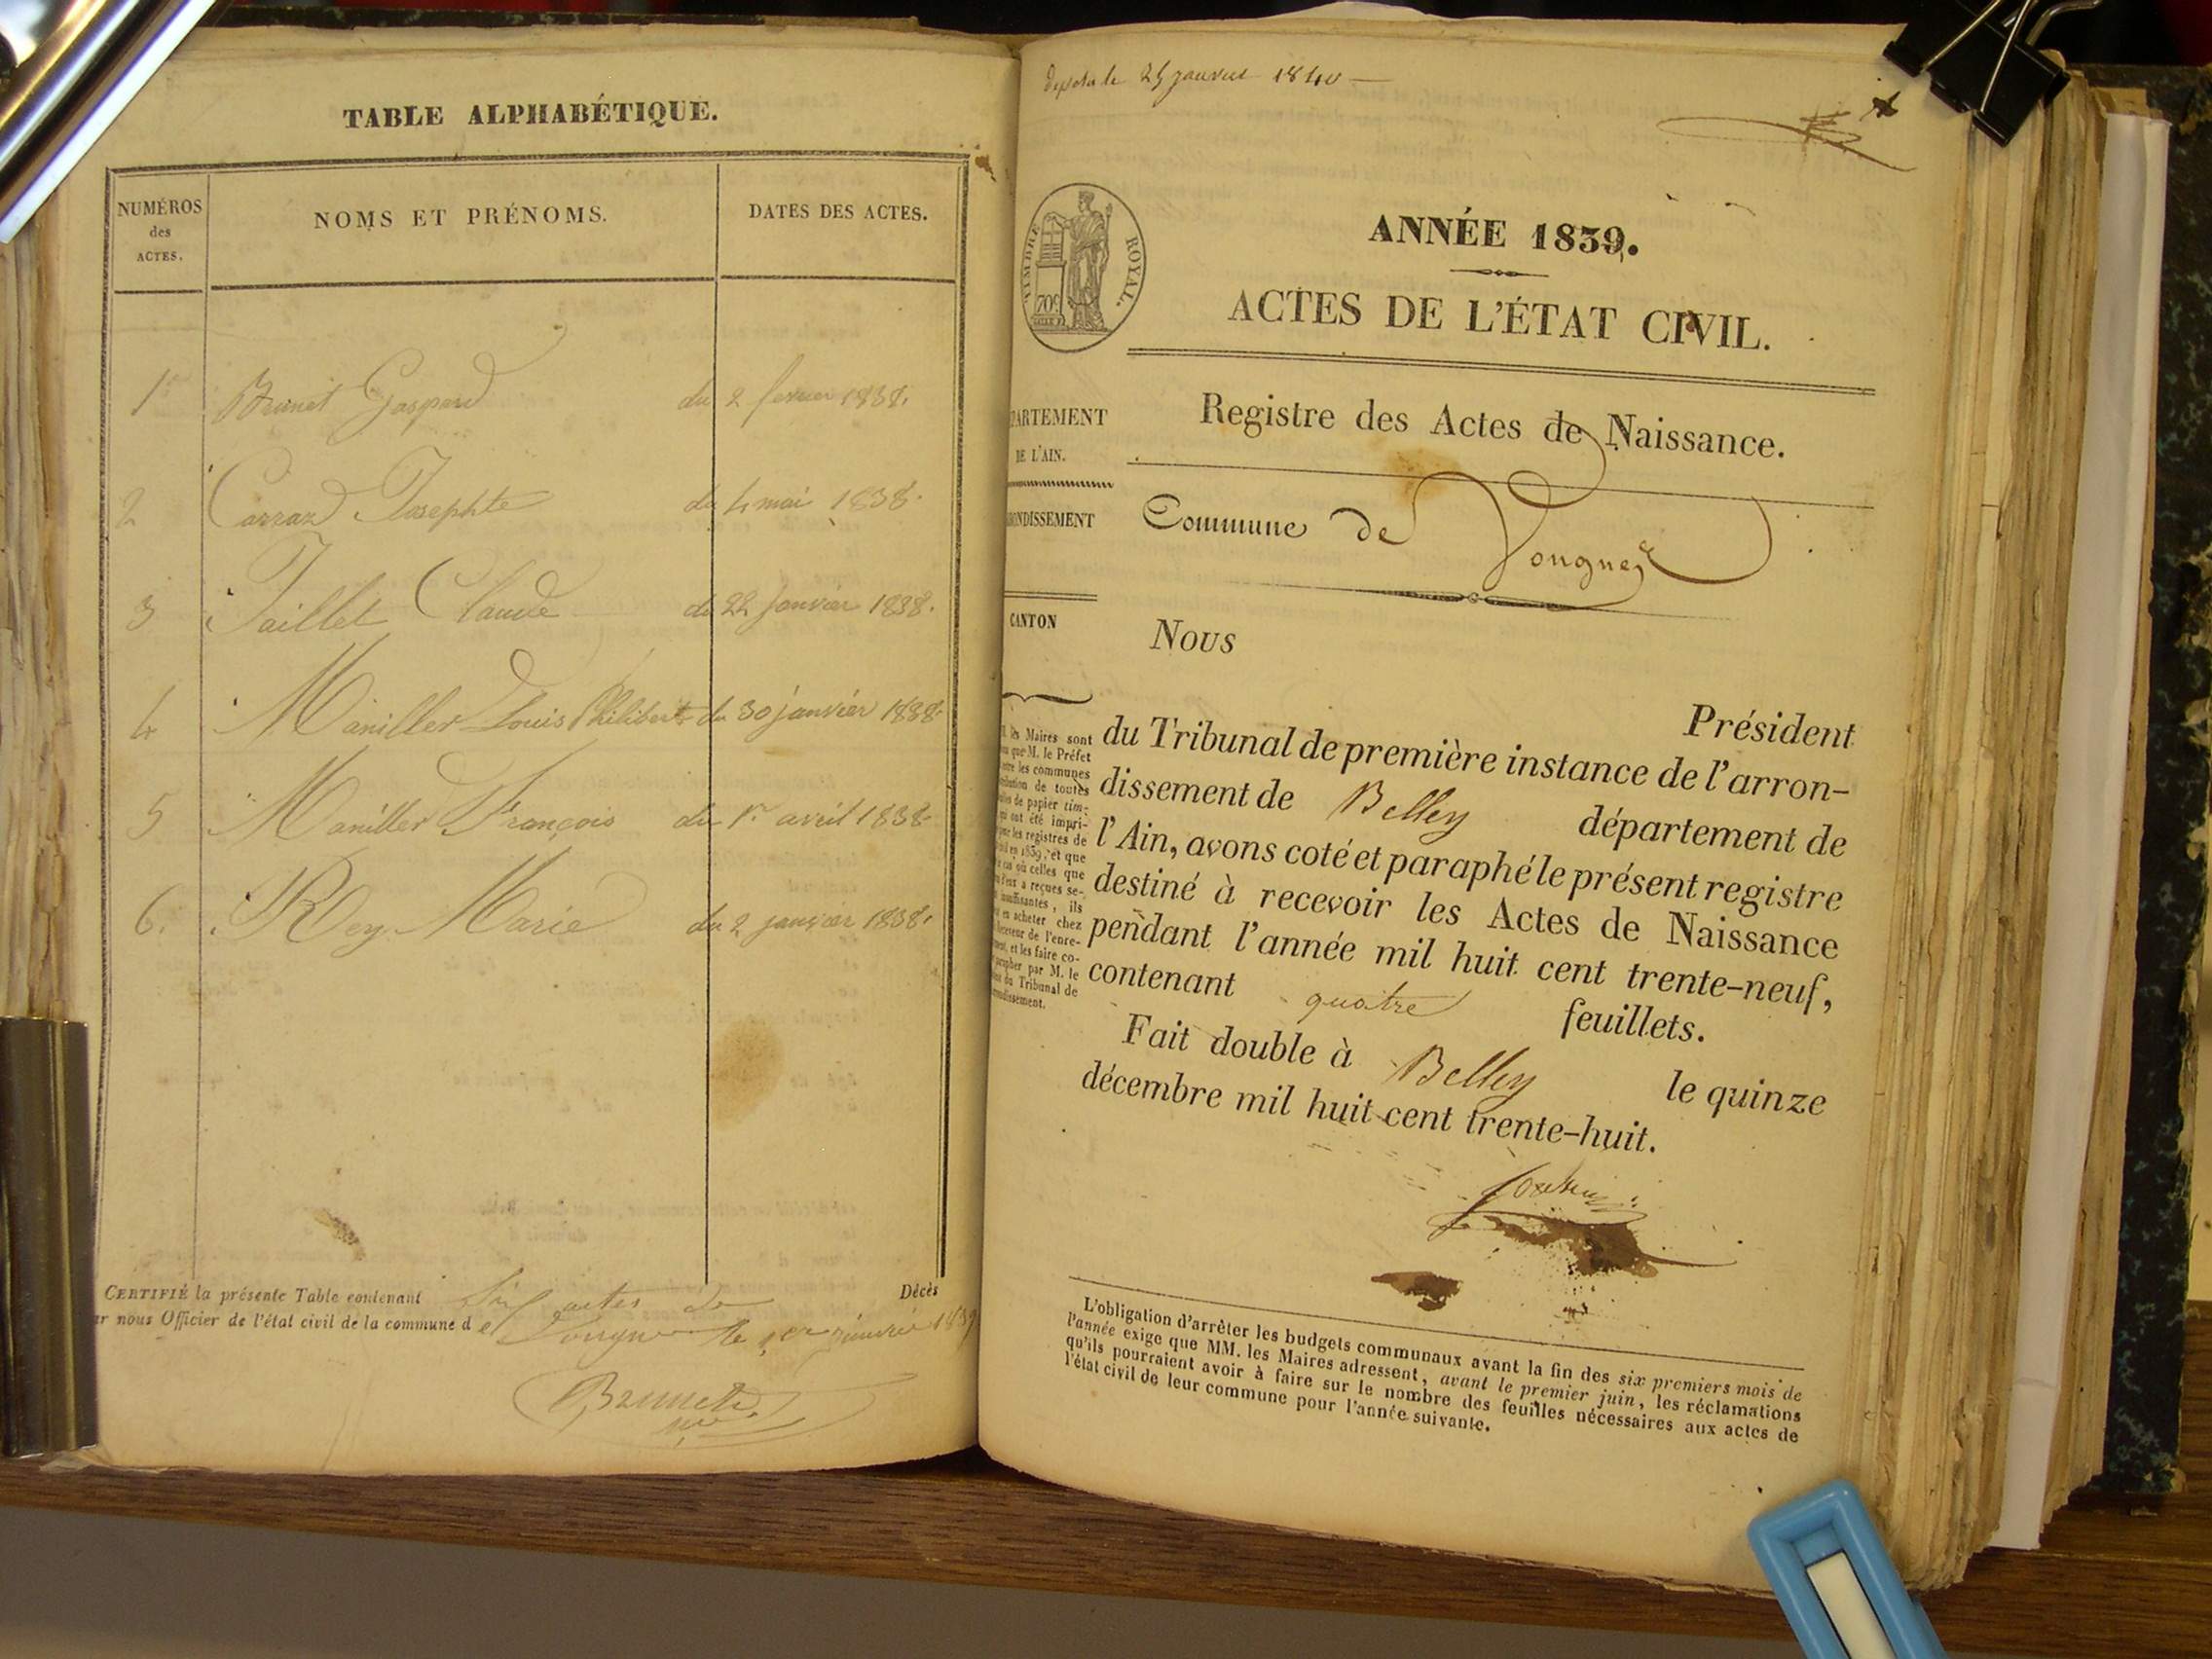 TABLE ALPHABÉTIQUE.
NUMÉROS
des
ACTES.
NOMS ET PRÉNOMS.
DATES DES ACTES.
1r Brunet Gaspard du 2 fevrier 1838.
2 Carraz Josephte du 4 mai 1838.
3 Jaillet Claude du 22 Janvier 1838.
4 Maniller Louis Philibert du 30 janvier 1838
5 Maniller François du 1r avril 1838
6. Rey Marie du 2 janvier 1838.
CERTIFIÉ la présente Table contenant Six actes de Décès
r nous Officier de l'état civil de la commune de Vongnes le 1er janvier 1839
Brunet
deposé le 25 janvier 1840
TIMBRE ROYAL.
70c
ANNÉE 1839.
ACTES DE L'ÉTAT CIVIL.
PARTEMENT
DE L'AIN.
Registre des Actes de Naissance.
RONDISSEMENT
Commune de Vongnes
CANTON
Nous
Président
du Tribunal de première instance de l'arron-
dissement de Belley département de
l'Ain, avons coté et paraphé le présent registre
destiné à recevoir les Actes de Naissance
pendant l'année mil huit cent trente-neuf,
contenant quatre feuillets.
Fait double à Belley le quinze
décembre mil huit cent trente-huit.
les Maires sont
que M. le Préfet
les communes
de toutes
de papier tim-
ont été impri-
les registres de
en 1839, et que
cas où celles que
a reçues se-
insuffisantes, ils
en acheter chez
de l'enre-
et les faire co-
par M. le
du Tribunal de
L'obligation d'arrêter les budgets communaux avant la fin des six premiers mois de
l'année exige que MM. les Maires adressent, avant le premier juin, les réclamations
qu'ils pourraient avoir à faire sur le nombre des feuilles nécessaires aux actes de
l'état civil de leur commune pour l'année suivante.